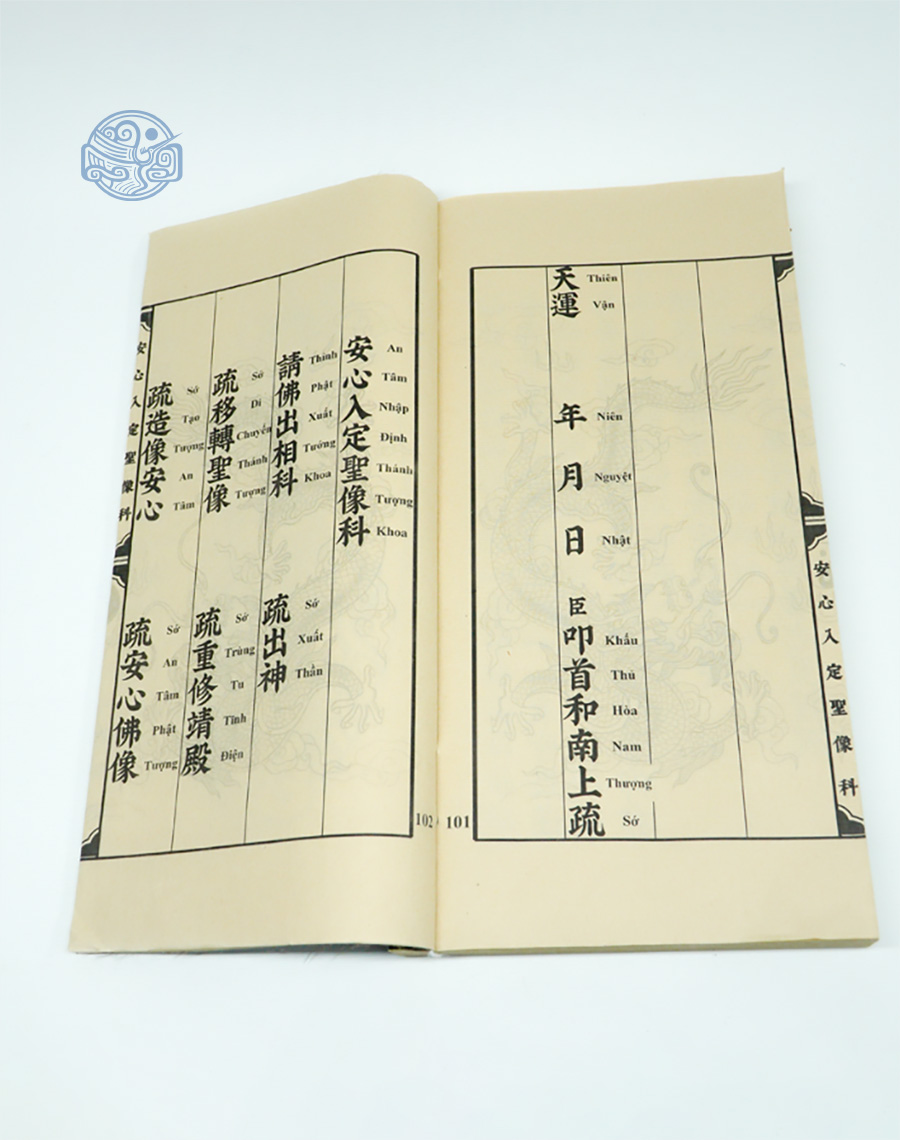 天運 年 月 日 臣叩首和南上疏
Thiên Vận Niên Nguyệt Nhật Khấu Thủ Hòa Nam Thượng Sớ
安心入定聖像科
101
安心入定聖像科
An Tâm Nhập Định Thánh Tượng Khoa
請佛出相科 疏出神
Thỉnh Phật Xuất Tướng Khoa Sớ Xuất Thần
疏移轉聖像 疏重修靖殿
Sớ Di Chuyển Thánh Tượng Sớ Trùng Tu Tĩnh Điện
疏造像安心 疏安心佛像
Sớ Tạo Tượng An Tâm Sớ An Tâm Phật Tượng
安心入定聖像科
102